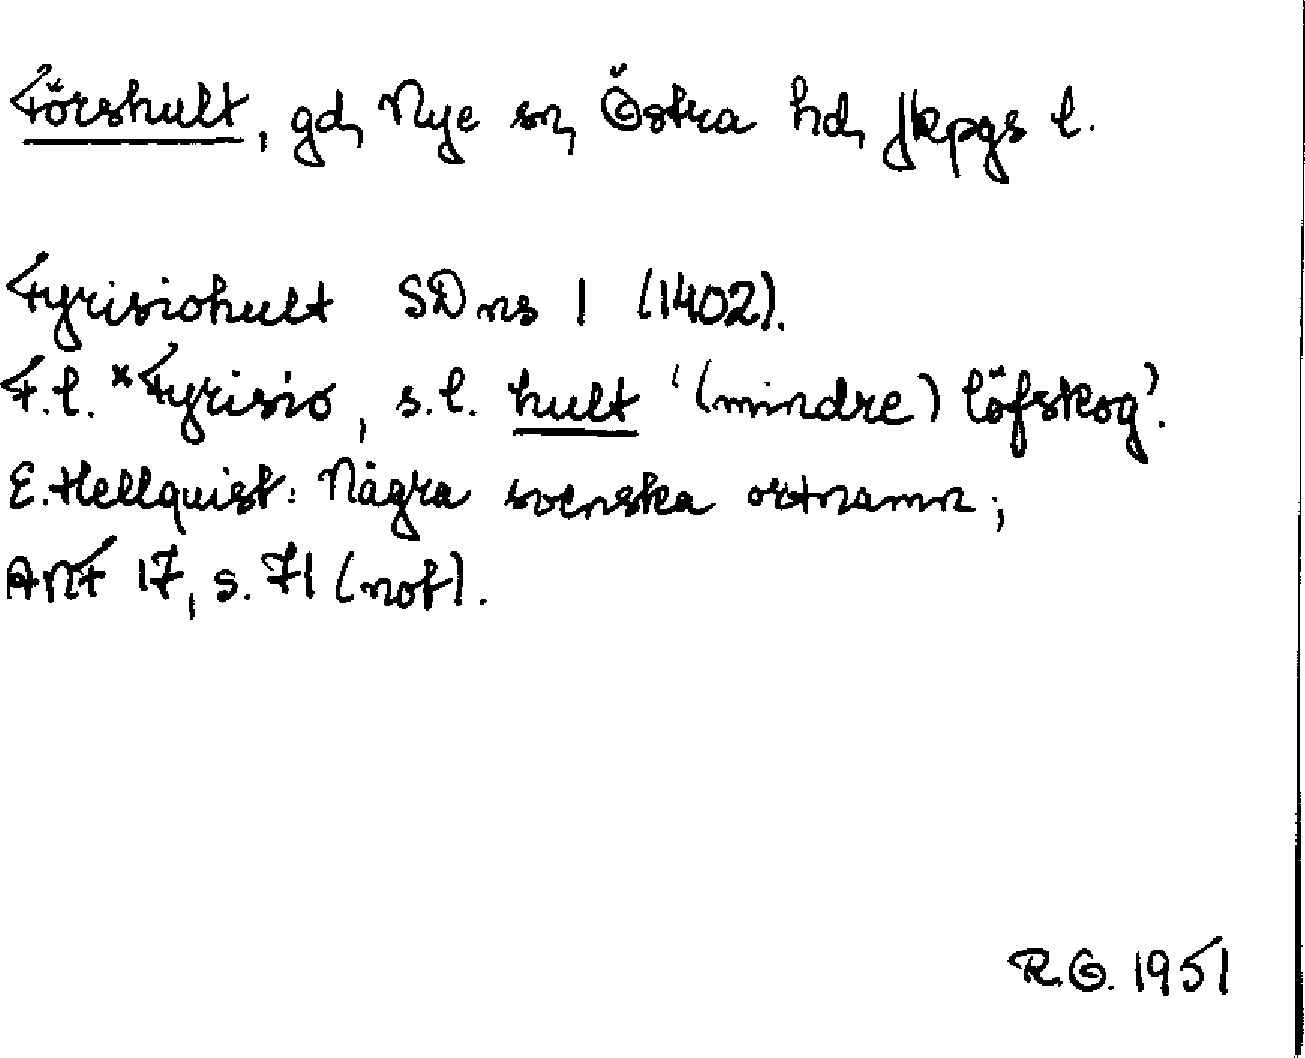 Förshult, gd, Nye sn, Östra hd, Jkpgs l.
Fyrisiohult SD ns 1 (1402).
F.l. *Fyrisio, s.l. hult '(mindre) löfskog'.
E. Hellquist: Några svenska ortnamn;
ANF 17, s. 71 (not).
R.O. 1951